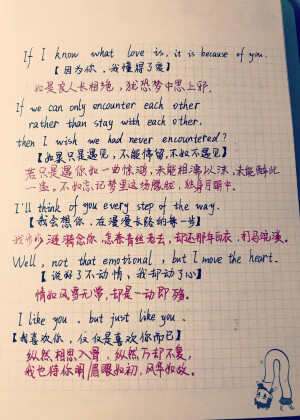 If I know what love is, it is because of you.
【因为你，我懂得了爱】
如是良人长相绝，犹恐梦中思上邪。
If we can only encounter each other
rather than stay with each other,
then I wish we had never encountered?
【如果只是遇见，不能停留，不如不遇见】
若只是遇你如一曲惊鸿，未能相濡以沫，未能醉此
一盏。不如忘记梦里这场朦胧，独身月明中。
I'll think of you every step of the way.
【我会想你，在漫漫长路的每一步】
我步步涟漪念你，怎奈青丝老去，却还那年白衣，打马流淇。
Well, not that emotional, but I move the heart.
【说好了不动情，我却动了心】
情如风雪无常，却是一动即殇。
I like you, but just like you.
【我喜欢你，仅仅是喜欢你而已】
纵然相思入骨，纵然万劫不复，
我也待你明眉眼如初，风华如故。